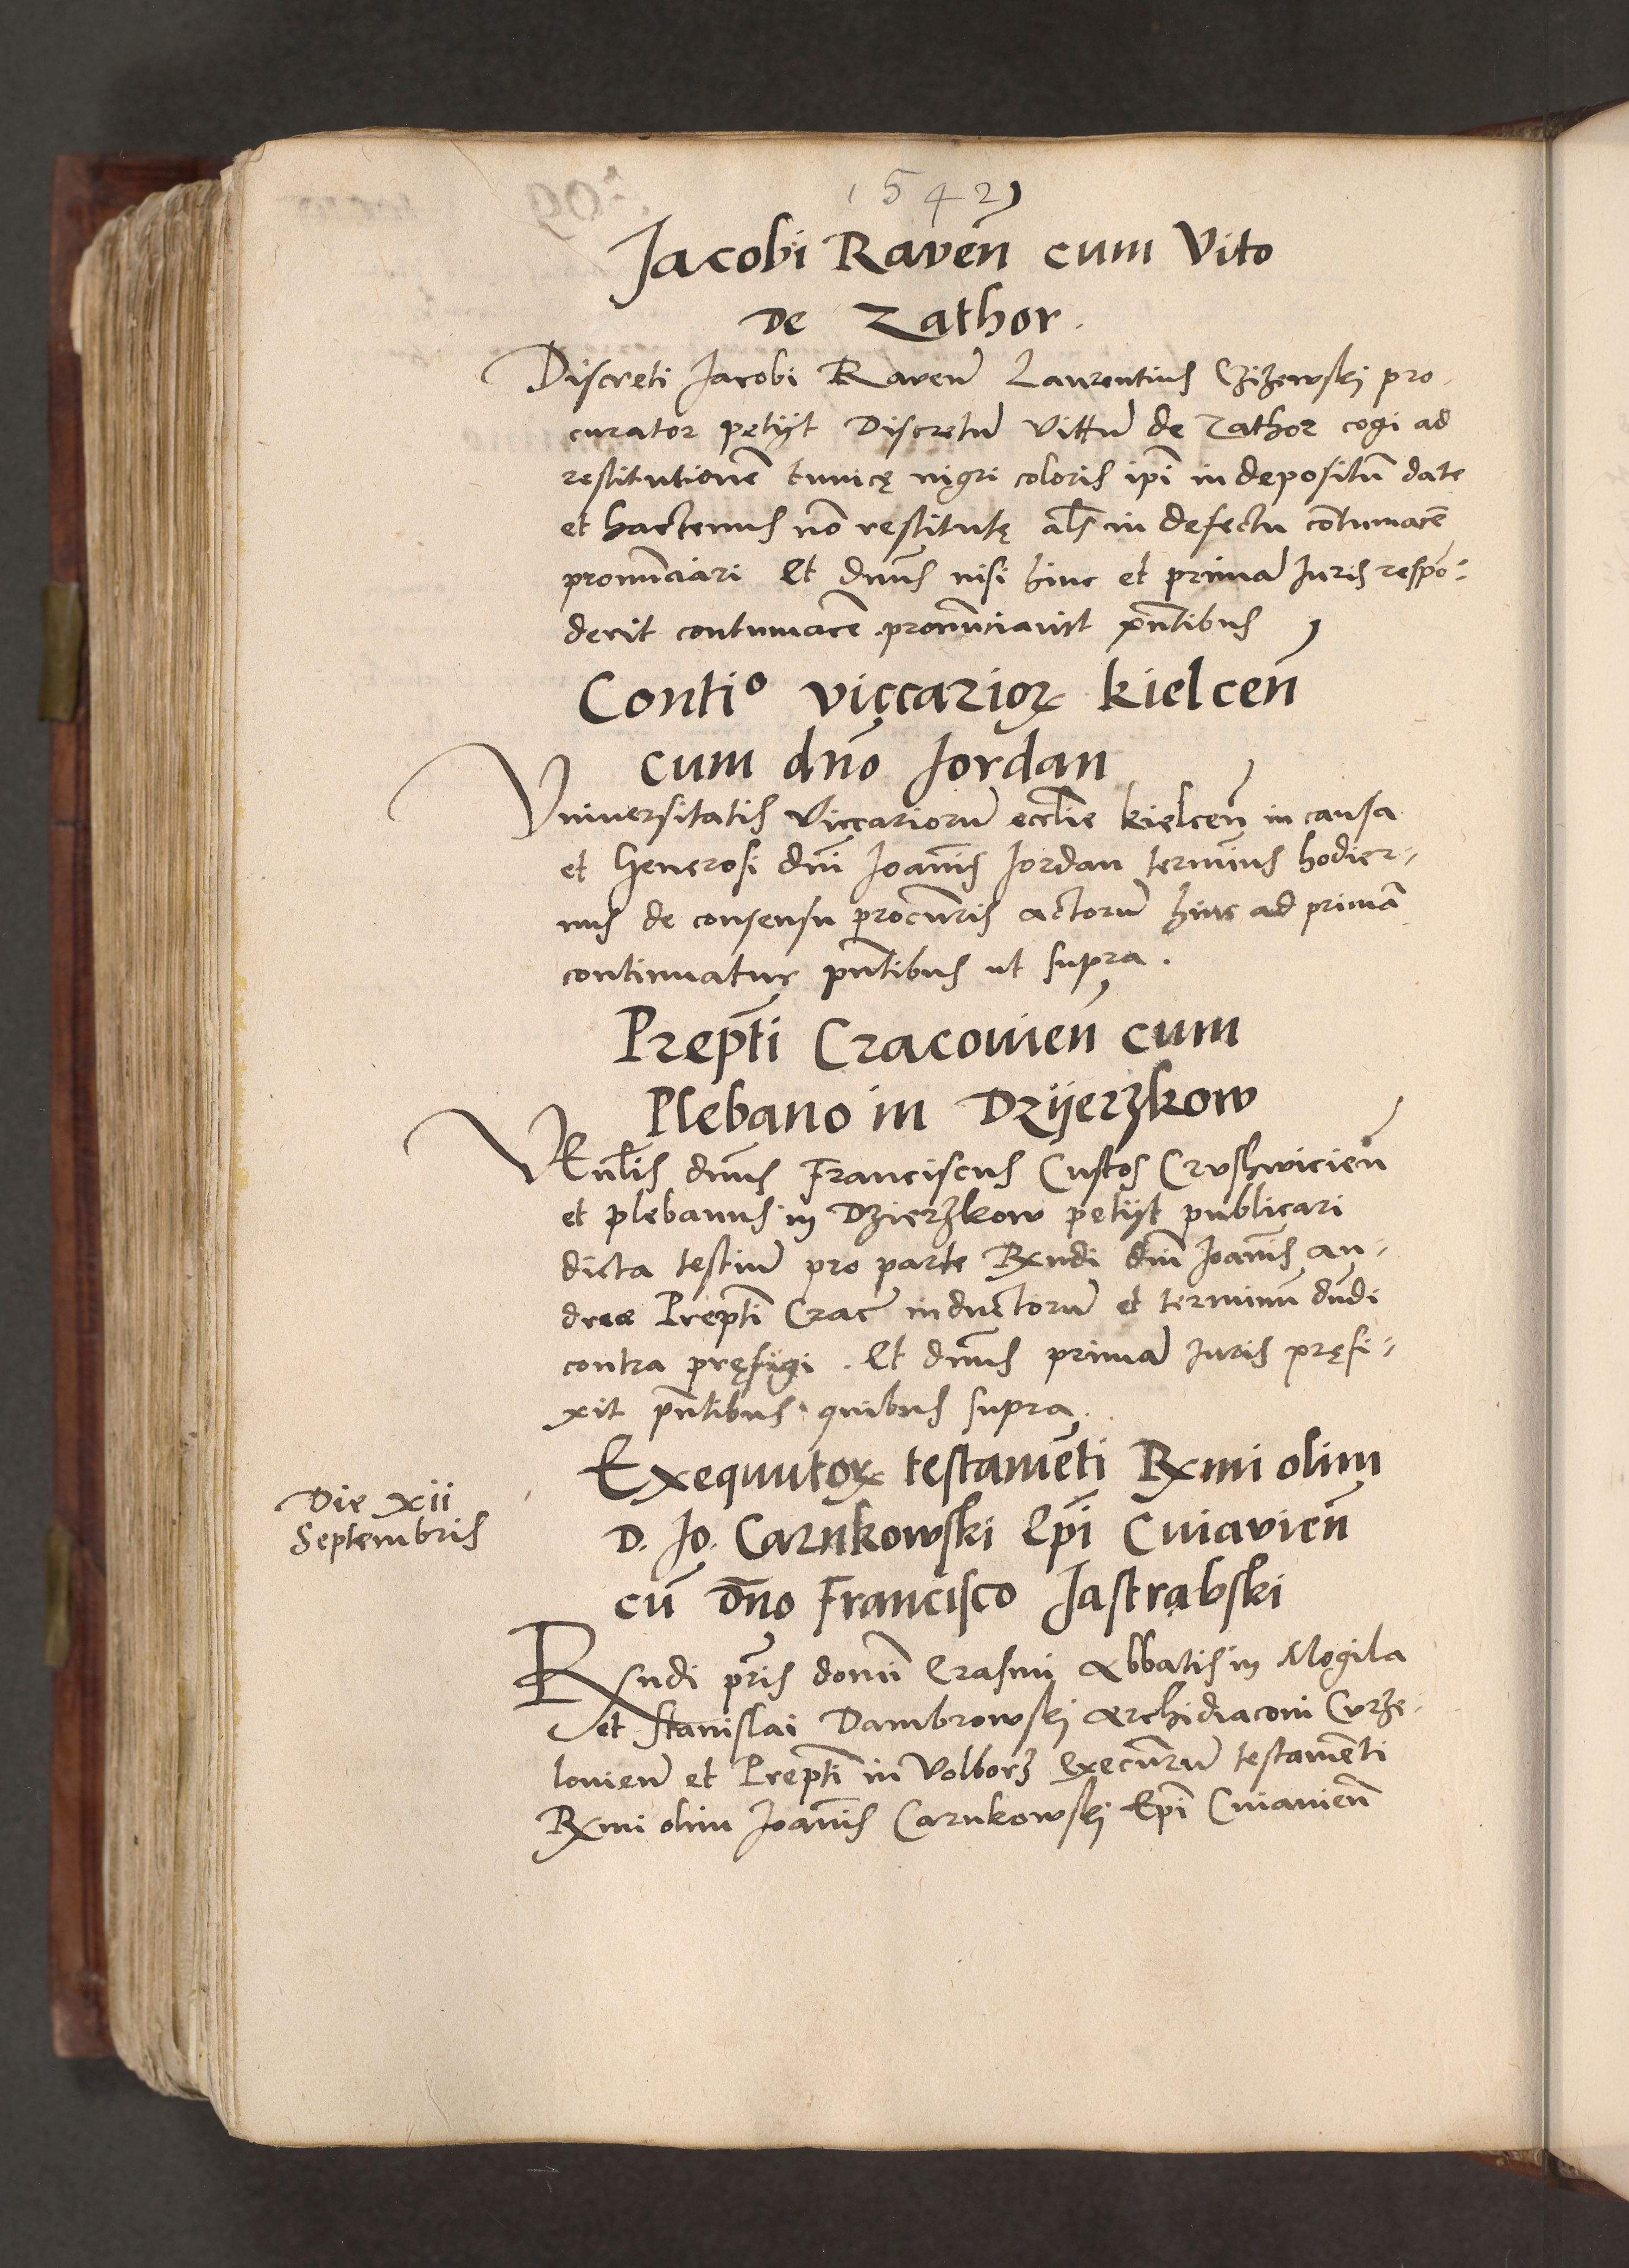 1542
Jacobi Raven̄ cum Vito
De Zathor.
Discreti Jacobi Raven̄ Laurentius Czizewskj pro
curator petijt Discretū Vittū de Zathor cogi ad
restitutionē tunicę nigri coloris ip̄i in depositū date
et hactenus nō restitutę al̄s in defectu cōtumacē
pronūciari Et dn̄us nisi hinc et primā Iuris respō-
derit contumacē pronūciavit pn̄tibus
Conti⁰ viccarioꝝ kielcen̄
cum dn̄o Jordan
Vniuersitatis Viccariorū eccl̄ie kielcen̄ in causa
et Generosi dn̄i Ioan̄is Jordan termin̄us hodier-
nus de consensu procur̄is actorū hinc ad primā
continuatur pn̄tibus ut supra.
Prep̄ti Cracouien̄ cum
Plebano in Dzijerzkow
VEn̄lis dn̄us Franciscus Custos Crushwicien̄
et plebanus in Dzierzkow petijt publicari
dicta testiū pro parte Rx̄ndi dn̄i Ioan̄is an-
dree Prep̄ti Crac̄ inductorū et terminū dn̄di
contra pręfigi. Et dn̄us primā Iuris pręfi-
xit pn̄tibus quibus supra.
Die xii
Septembris
Exequutoꝝ testamēti Rx̄mi olim
D. Jo. Carnkowski Ep̄i Cuiavien̄
cū dn̄o Francisco Jastrąbski
Rx̄ndi pr̄is domīi Erasmi Abbatis in Mogila
et Stanislai Dambrowskj Archidiaconi Curze-
lovien̄ et Prep̄ti in Volborz Execut̄rum testamēti
Rx̄mi olim Ioan̄is Carnkowskj Ep̄i Cuiavien̄